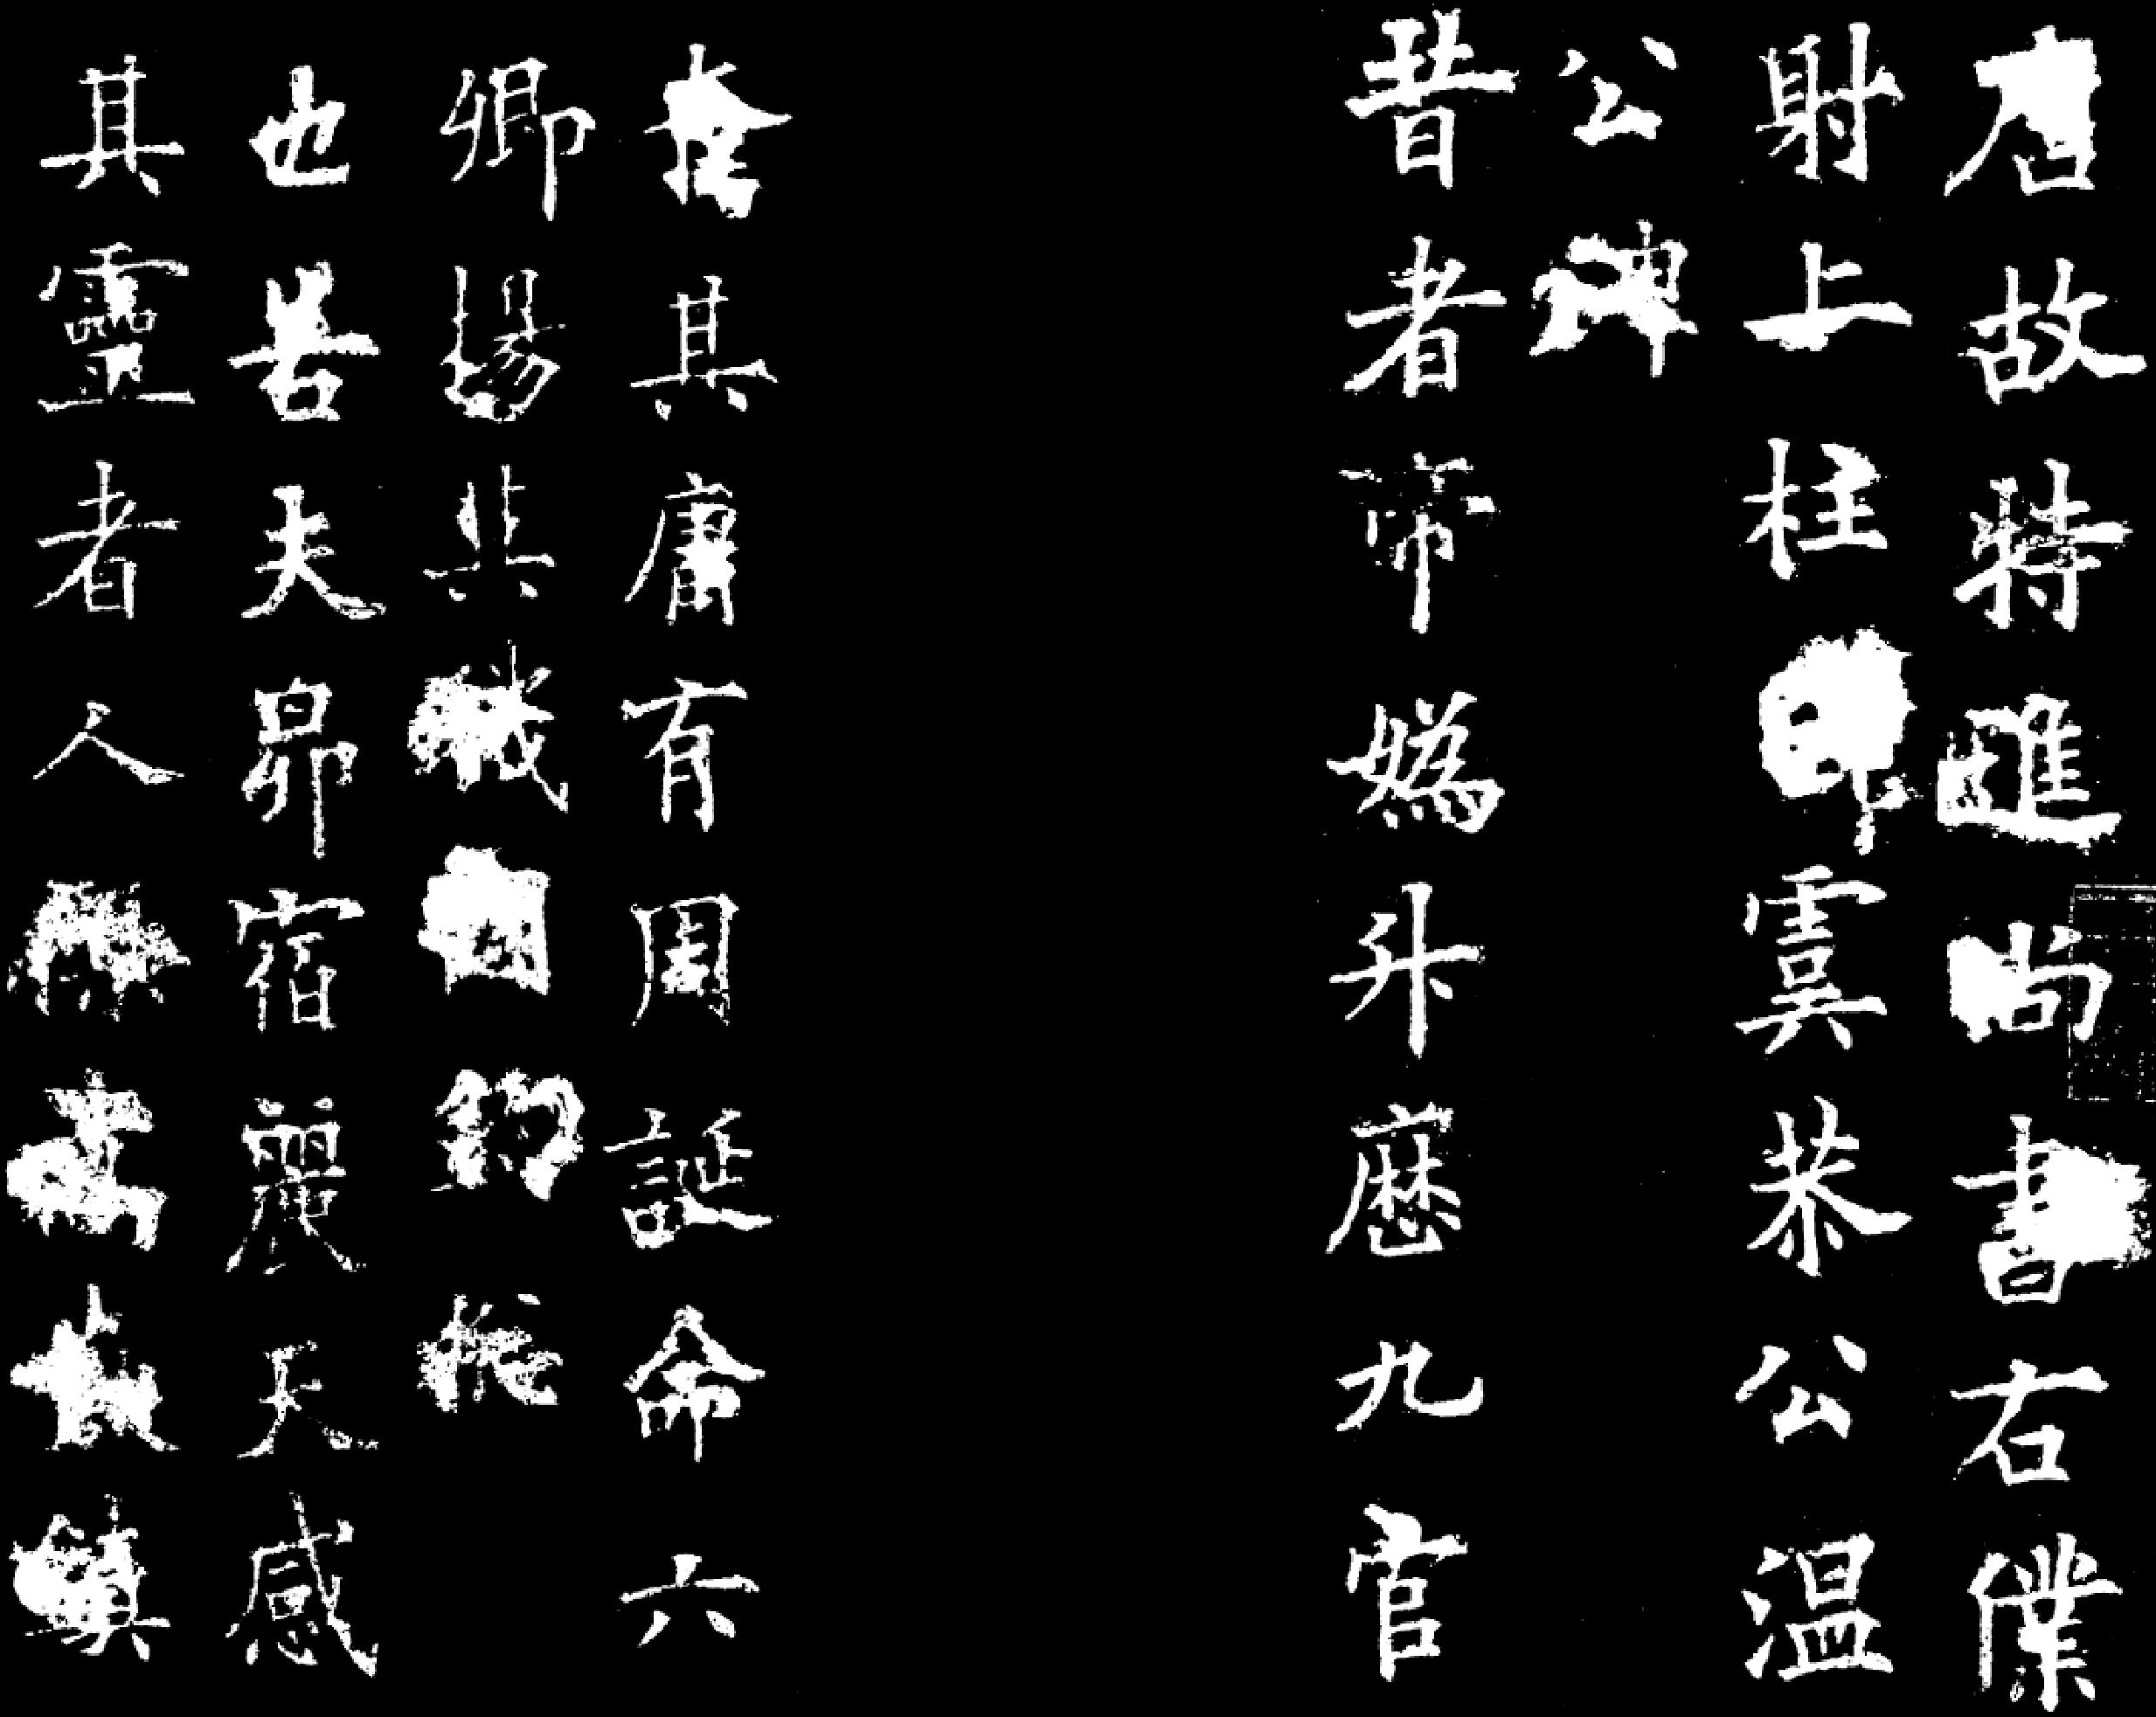 唐故特進尚書右僕
射上柱虞恭公温
公碑
昔者帝媯升曆九官
奮其庸有周誕命六
卿揚其職鈞
也若夫昴宿麗天感
其靈者人鎮